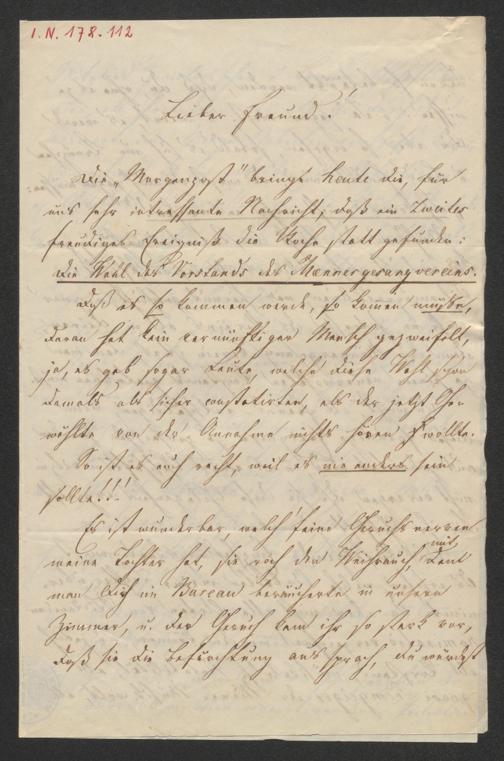 I.N. 178.112
Lieber Freund!
Die „Morgenpost" bringt heute die, für
uns sehr intressante Nachricht, daß ein zweites
freudiges Ereigniß die Woche statt gefunden:
die Wahl des Vorstands des Männergesangvereins.
Daß es so kommen werde, so kommen müsse,
daran hat kein vernünftiger Mensch gezweifelt,
ja, es gab sogar Leute, welche diese Wahl schon
damals als sicher constatirten, als der jetzt Ge-
wählte von der Annahme nichts hören wollte.
So ist es auch recht, weil es nie anders sein
sollte!!!
Es ist wunderbar, welch' feine Geruchsnerven
meine Tochter hat, sie roch den Weihrauch, mit dem
man Dich im Bureau beräucherte in unserm
Zimmer, u. der Geruch kam ihr so stark vor,
daß sie die Befürchtung aussprach, du würdest